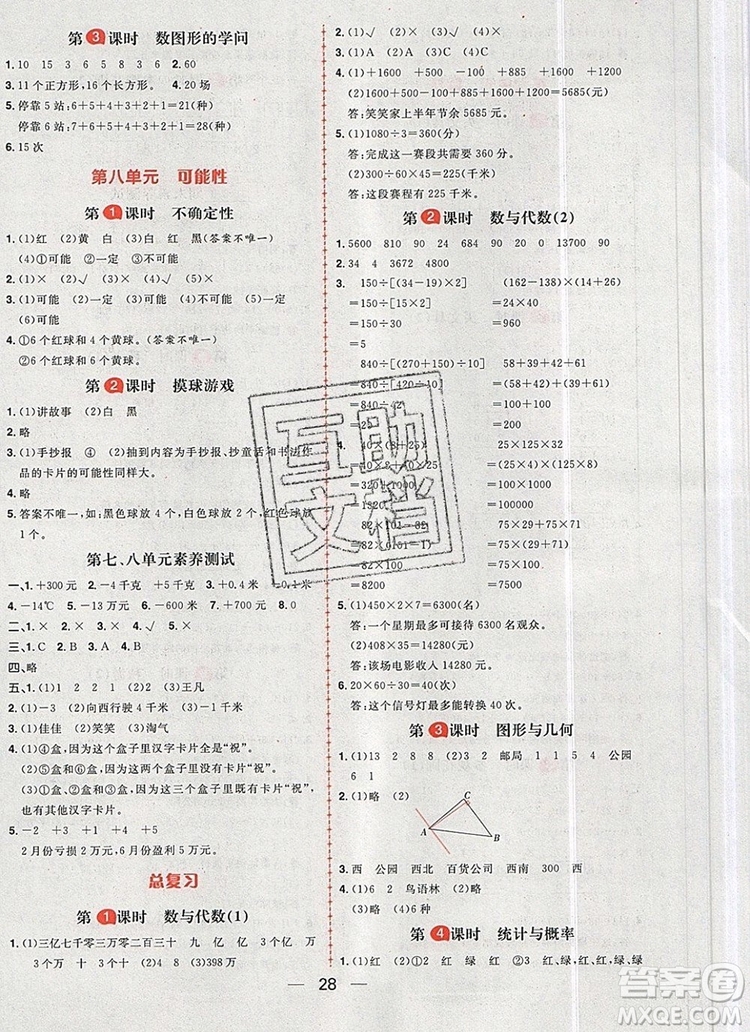 第3课时 数图形的学问
1. 10 15 3 6 10 16 2. 60
3. 11个正方形,16个长方形。 4. 20场
5. 停靠5站:6+5+4+3+2+1=21(种)
停靠6站:7+6+5+4+3+2+1=28(种)
6. 15次
第八单元 可能性
第1课时 不确定性
1. (1)红 (2)黄 白 (3)白 红 黑(答案不唯一)
(4)①可能 ②一定 ③不可能
2. (1)× (2)√ (3)× (4)√
3. (1)可能 (2)一定 (3)可能 (4)不可能 (5)一定
(6)可能
4. ①6个红球和4个黄球。(答案不唯一)
②6个红球和6个黄球。
第2课时 摸球游戏
1. (1)讲故事 (2)白 黑
2. 略
3. (1)手抄报 ④ (2)抽到内容为手抄报、抄童话和书法作
品的卡片的可能性同样大。
4. 略
5. 答案不唯一,如:黑色球放4个,白色球放6个,红色球放
1个。
第七、八单元素养测试
一、1. +300元 2. -4千克 +5千克 3. +0.4米 -0.1米
4. -14℃ 5. -2万元 6. +700元 7. +0.8
二、1. × 2. × 3. × 4. √ 5. ×
三、1. C 2. B 3. A 4. B 5. A
四、略
五、1. (1)1 2 2 1 (2)王凡
2. (1)-2 (2)向西行驶4千米 (3)-1千米
3. (1)佳佳 (2)笑笑 (3)淘气
4. (1)④盒,因为这个盒子里汉字卡片全是“祝”。
(2)⑤盒,因为这个盒子里没有汉字卡片“祝”。
(3)②盒,因为这个盒子里汉字卡片“祝”的数量
少,而其他汉字卡片多。
5. -2 +3 -1 -4 +4 +5
2月份亏损2万元,6月份盈利5万元。
总复习
第1课时 数与代数(1)
1. (1)三亿七千零三万零二百三十 九 亿 亿 3个亿 万
3个万 十 3个十 (2)4 8 (3)398万
2. (1)√ (2)× (3)√ (4)√ (5)×
3. (1)A (2)C (3)A (4)C
4. (1)+1600 +1500 -100 +885 +1600 +200
(2)1600+1500-100+885+1600+200=5685(元)
答:笑笑家上半年节余5685元。
5. (1)1080÷3=360(分)
答:完成这一赛段共需要360分。
(2)300÷4×3=225(千米)
答:这段赛程有225千米。
第2课时 数与代数(2)
1. 5600 810 90 24 680 90 20 0 13700 90
2. 34 4 3673 4800
3. 150÷[(34-19)×2] (162-138)×(25×16)
=150÷[15×2] =24×400
=150÷30 =9600
=5
840÷[(210+210)×2] 58+29+42+71
=840÷[420×2] =(58+42)+(29+71)
=840÷ =100+100
=1 =200
4. 40×(8+25) 25×125×4×8
=40×8+40×25 =(25×4)×(125×8)
=320+1000 =100×1000
=1320 =100000
82×101-82 75×99+75
=82×(101-1) =75×(99+1)
=82×100 =75×100
=8200 =7500
5. (1)450×2×7=6300(名)
答:一个星期最多可接待6300名观众。
(2)408×35=14280(元)
答:该场电影收入14280元。
6. 20×60÷30=40(次)
答:这个信号灯最多能转换40次。
第3课时 图形与几何
1. (1)13 2 8 8 (2)3 2 邮局 11 4 4 公园
6 1
2. (1)略 (2)
A
B
C
3. 西 公园 西北 百货公司 西南 300 西
4. (1)6 2 鸟语林 (2)略
(3)略 (4)6种
第4课时 统计与概率
1. (1)红 (2)① 红 ② 红 绿 ③ 红,绿 红,红,绿 红,绿,绿
28
互助
文档
答案圈
MXQE.COM